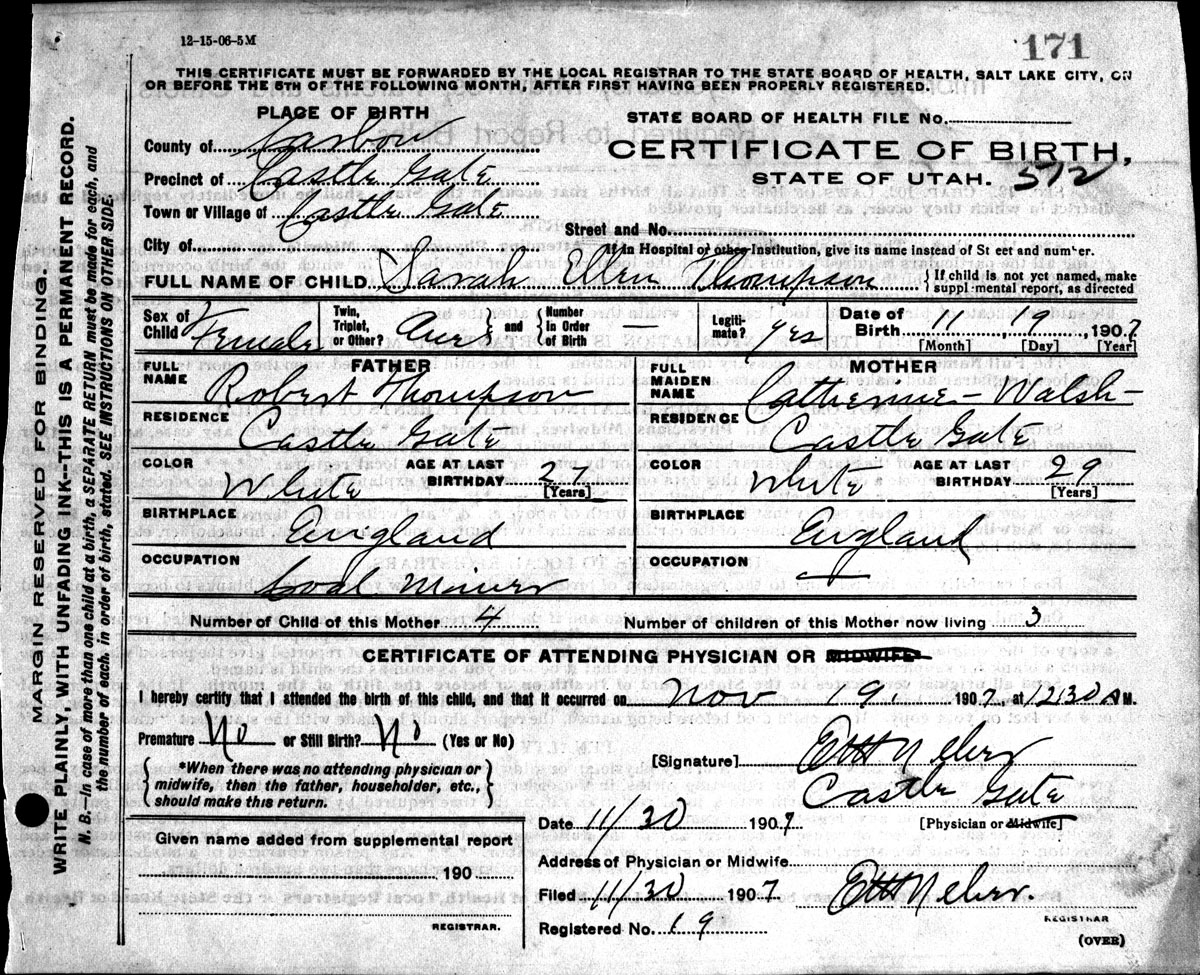 12-15-06-5M
171
THIS CERTIFICATE MUST BE FORWARDED BY THE LOCAL REGISTRAR TO THE STATE BOARD OF HEALTH, SALT LAKE CITY, ON
OR BEFORE THE 5TH OF THE FOLLOWING MONTH, AFTER FIRST HAVING BEEN PROPERLY REGISTERED.
PLACE OF BIRTH
County of Carbon
Precinct of Castle Gate
Town or Village of Castle Gate
City of
STATE BOARD OF HEALTH FILE No.
CERTIFICATE OF BIRTH,
STATE OF UTAH. 572
Street and No.
If in Hospital or other Institution, give its name instead of St eet and number.
FULL NAME OF CHILD Sarah Ellen Thompson { If child is not yet named, make
suppl mental report, as directed
Sex of Child Female
Twin, Triplet, or Other? One } and { Number in Order of Birth —
Legiti- mate? Yes
Date of Birth 11 19 1907
[Month] [Day] [Year]
FATHER
FULL NAME Robert Thompson
RESIDENCE Castle Gate
COLOR White AGE AT LAST BIRTHDAY 27 [Years]
BIRTHPLACE England
OCCUPATION Coal Miner
MOTHER
FULL MAIDEN NAME Catherine Walsh
RESIDENCE Castle Gate
COLOR White AGE AT LAST BIRTHDAY 29 [Years]
BIRTHPLACE England
OCCUPATION —
Number of Child of this Mother 4 Number of children of this Mother now living 3
CERTIFICATE OF ATTENDING PHYSICIAN OR MIDWIFE
I hereby certify that I attended the birth of this child, and that it occurred on Nov 19 1907, at 12 30 A M.
Premature No or Still Birth? No (Yes or No)
{ *When there was no attending physician or }
midwife, then the father, householder, etc.,
should make this return.
[Signature]
Castle Gate
[Physician or Midwife]
Date 11/30 1907
Given name added from supplemental report
190
REGISTRAR.
Address of Physician or Midwife
Filed 11/30 1907
REGISTRAR
Registered No. 19
(OVER)
MARGIN RESERVED FOR BINDING.
WRITE PLAINLY, WITH UNFADING INK--THIS IS A PERMANENT RECORD.
N. B.--In case of more than one child at a birth, a SEPARATE RETURN must be made for each, and
the number of each. in order of birth, stated. SEE INSTRUCTIONS ON OTHER SIDE.